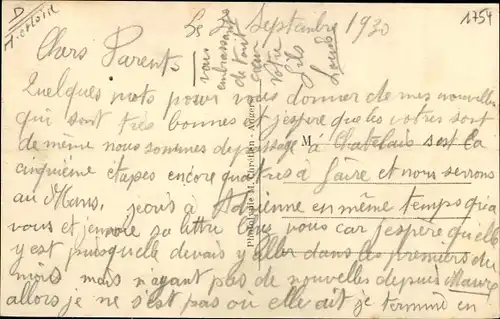 D
1754
Le Septembre 1930
Chers Parents
Quelques mots pour vous donner de mes nouvelles
qui sont très bonnes j'espère que les votres sont
de même nous sommes de passage à Chatelais sest la
cinquième étapes encore quatres à faire et nous serrons
au Mans, jecris à Adrienne en même temps qu'a
vous et j'envoie sa lettre chez vous car j'espère qu'elle
y est puisquelle devais y aller dans les premiers du
mois mais n'ayant pas de nouvelles depuis Maure
allors je ne s'est pas où elle ait je termine en
vous
embrassant
de tout
cœur
Votre
fils
Louis
M
Phototypie M. Chrétien - Angers